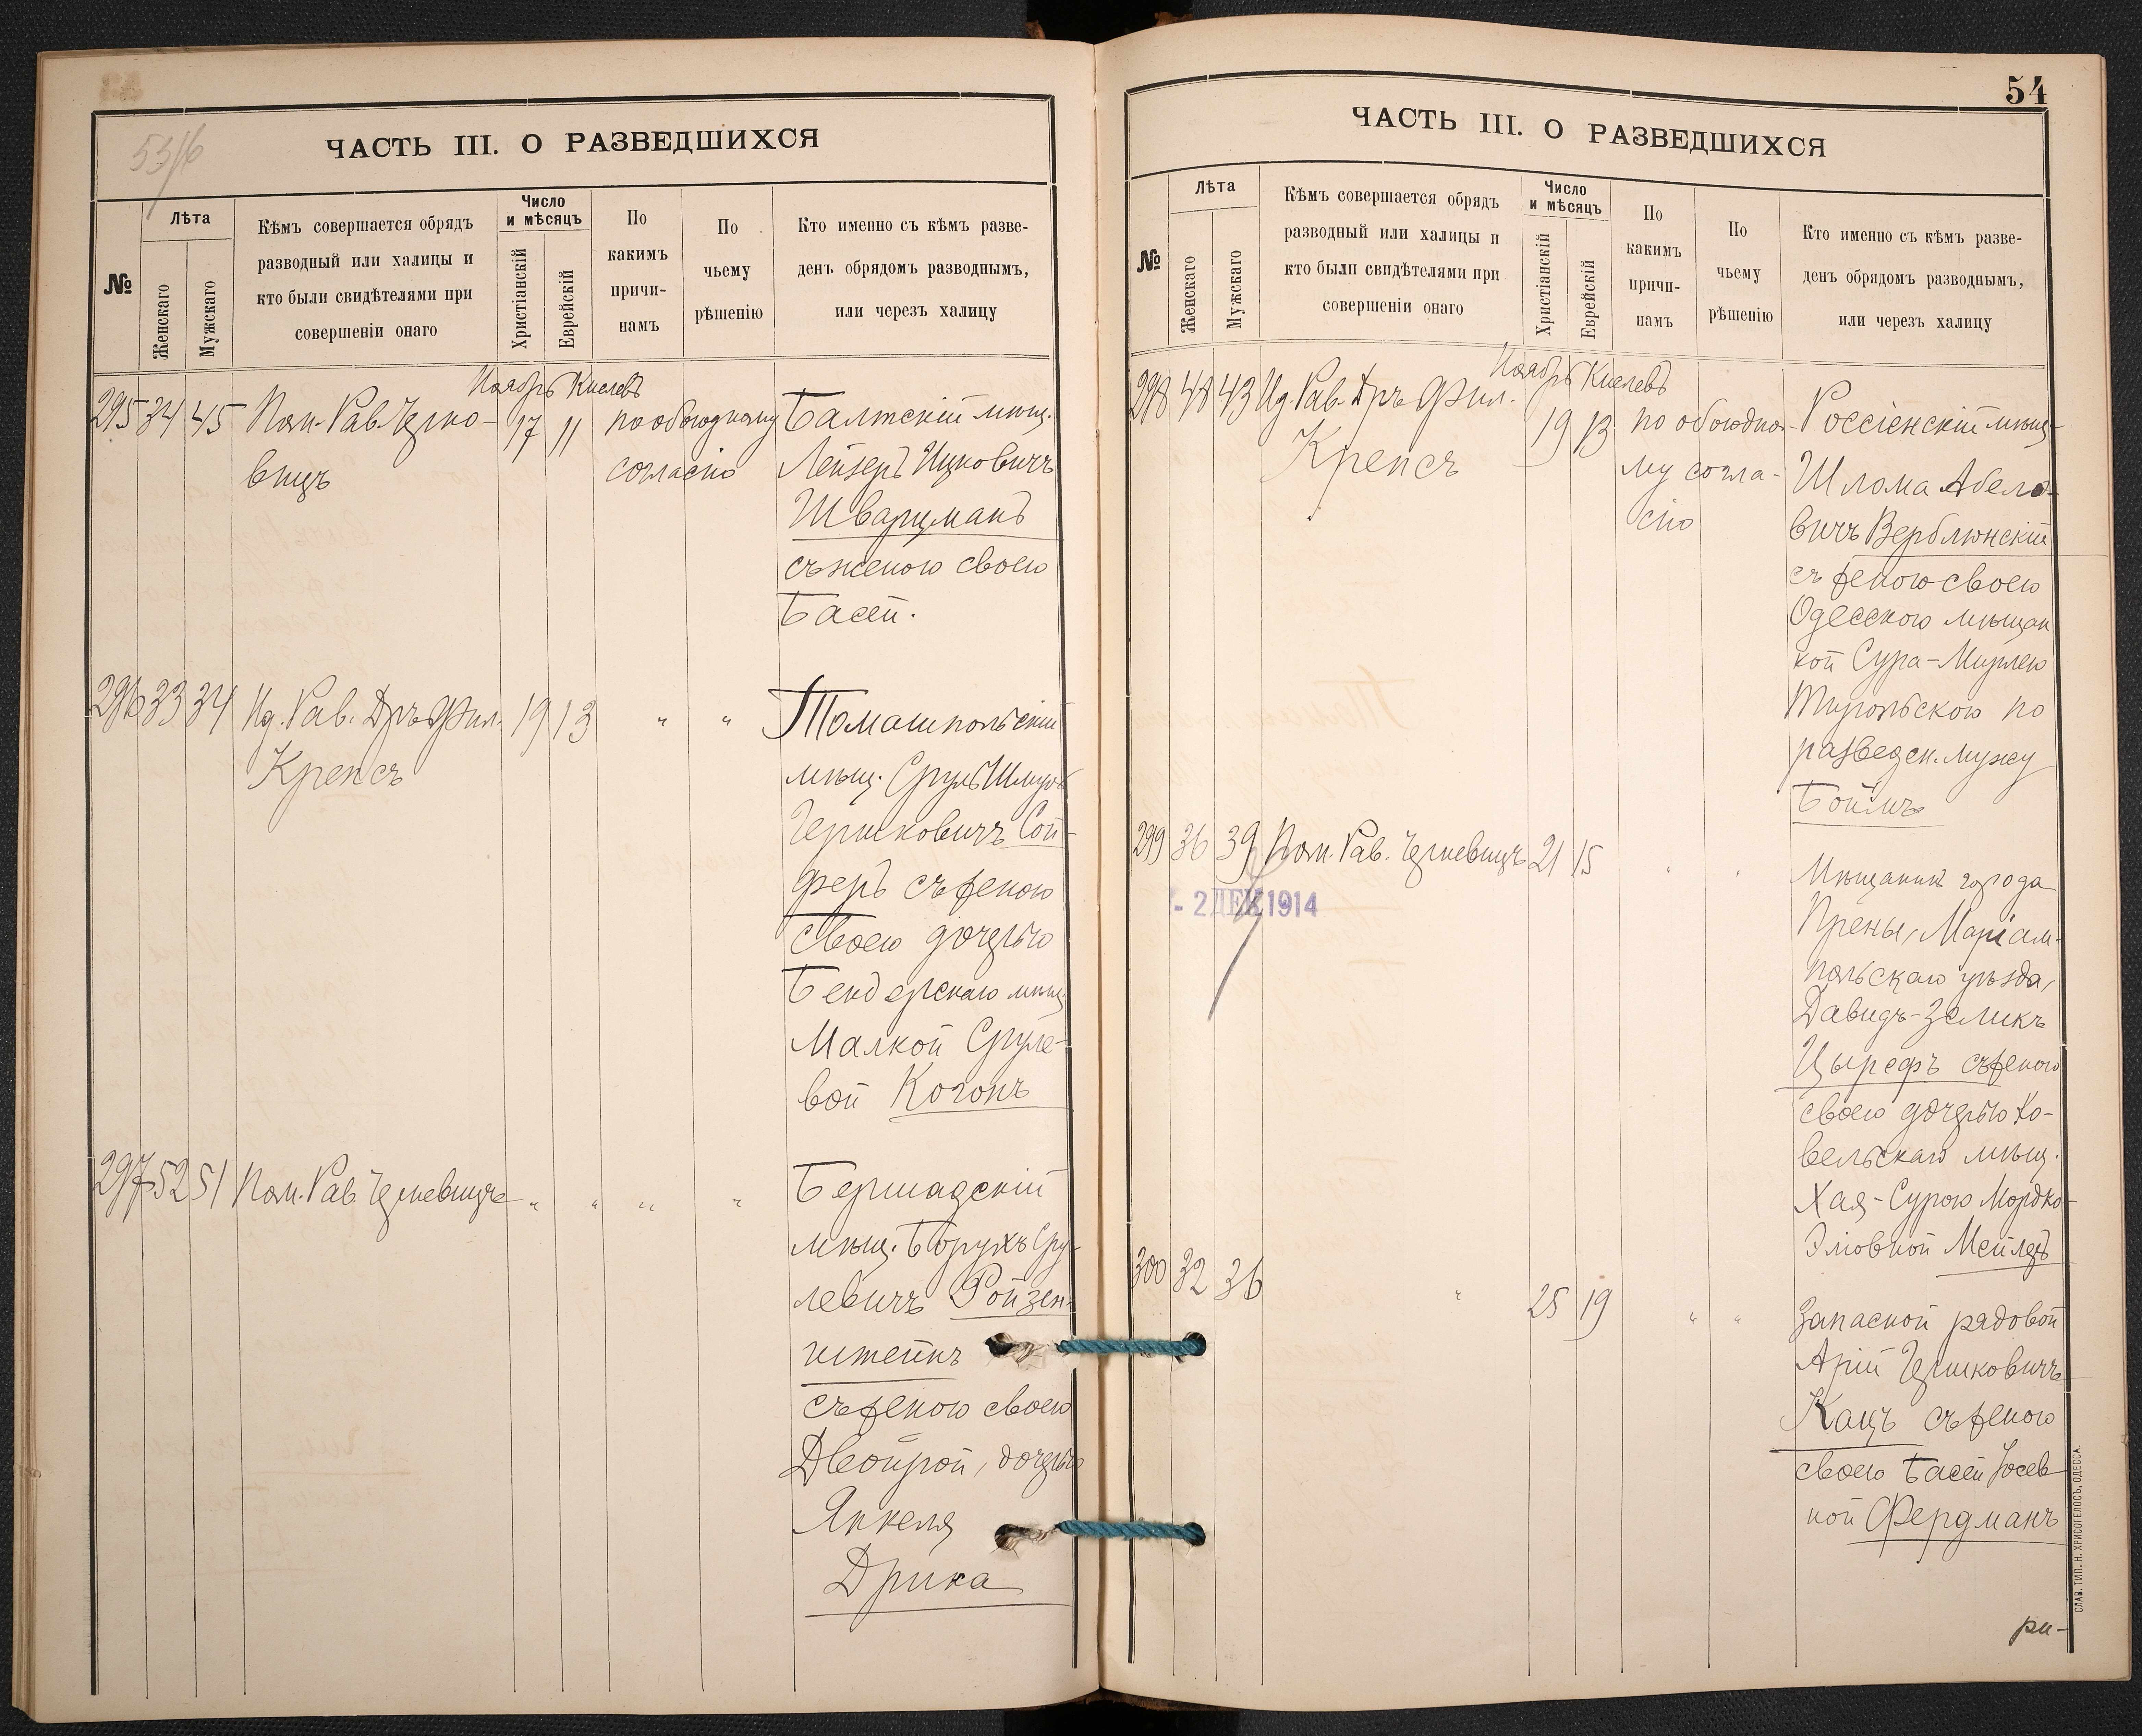 53/б
ЧАСТЬ III. О РАЗВЕДШИХСЯ
№
Лѣта
Женскаго
Мужскаго
Кѣмъ совершается обрядъ
разводный или халицы и
кто были свидѣтелями при
совершеніи онаго
Число
и мѣсяцъ
Христіанскій
Еврейскій
По
какимъ
причи-
намъ
По
чьему
рѣшенію
Кто именно съ кѣмъ разве-
денъ обрядомъ разводнымъ,
или черезъ халицу
Ноябрь Кислевъ
295 34 45 Пом. Рав. Черно-
вицъ
17 11
по обоюдному
согласію
Балтскій мѣщ.
Лейзеръ Ицковичъ
Шварцманъ
съ женою своею
Басей.
296 33 34 Ид. Рав. Дръ Фил.
Крепсъ
19 13 " "
Томашпольскій
мѣщ. Сруль Шмуль
Гершковичъ Сой-
феръ съ женою
своею дочерью
Бендерскаго мѣщ.
Малкой Сруле-
вой Когонъ
297 52 51 Пом. Рав. Черневицъ " " " "
Бершадскій
мѣщ. Борухъ Сру-
левичъ Ройзен-
штейнъ
съ женою своею
Двойрой, дочерью
Янкеля
Дрика
54
ЧАСТЬ III. О РАЗВЕДШИХСЯ
№
Лѣта
Женскаго
Мужскаго
Кѣмъ совершается обрядъ
разводный или халицы и
кто были свидѣтелями при
совершеніи онаго
Число
и мѣсяцъ
Христіанскій
Еврейскій
По
какимъ
причи-
намъ
По
чьему
рѣшенію
Кто именно съ кѣмъ разве-
денъ обрядомъ разводнымъ,
или черезъ халицу
Ноябрь Кислевъ
298 48 43 Ид. Рав. Дръ Фил.
Крепсъ
19 13
по обоюдно-
му согла-
сію
Россіенскій мѣщ.
Шлома Абело-
вичъ Верблюнскій
съ женою своею
Одесскою мѣщан
кой Сура-Мирлею
по
разведен. мужу
Боймъ
299 36 39 Пом. Рав. Черневицъ 21 15 " "
- 2 ДЕК 1914
Мѣщанинъ города
Прены, Маріам-
польскаго уѣзда,
Давидъ-Зеликъ
Цырефъ съ женою
своею дочерью Ко-
вельскаго мѣщ.
Хая-Сурою Мордко-
Эліовной Мейлеръ
300 32 36 " 25 19 " "
Запасной рядовой
Арій Гершковичъ
Кацъ съ женою
своею Басей Іосев-
ной Фердманъ
ри-
СЛАВ. ТИП. Н. ХРИСОГЕЛОСЪ, ОДЕССА.